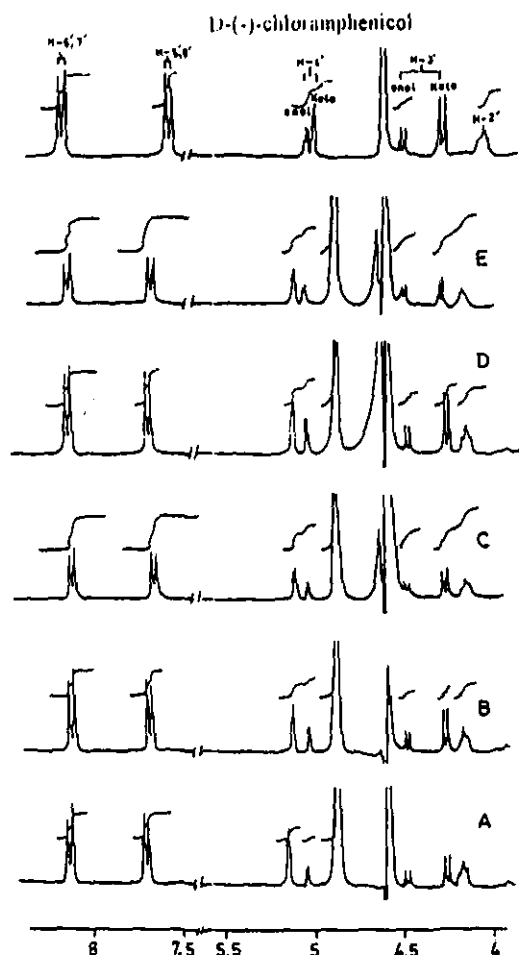 D-(-)-chloramphenicol
H-6',7'
H-5',8'
H-1'
enol
Keto
H-3'
enol
Keto
H-2'
E
D
C
B
A
8
7.5
5.5
5
4.5
4